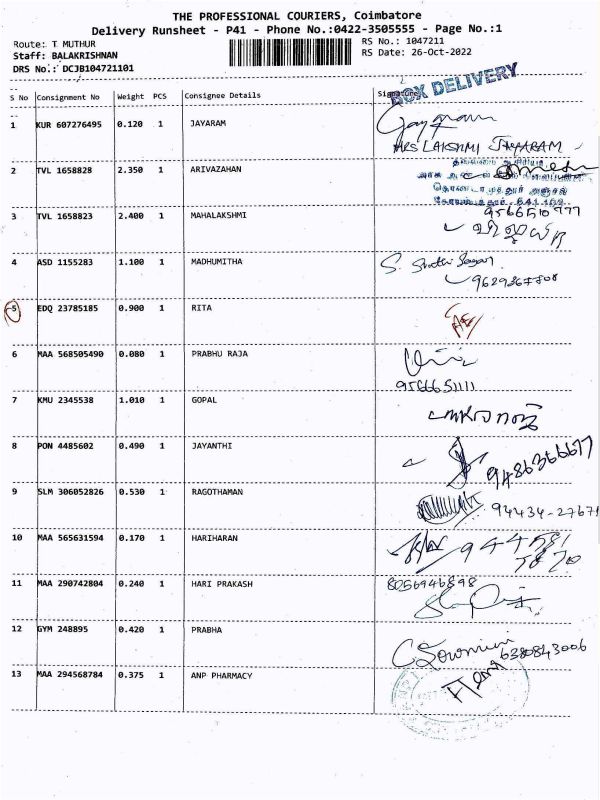 THE PROFESSIONAL COURIERS, Coimbatore
Delivery Runsheet - P41 - Phone No.:0422-3505555 - Page No.:1
Route: T MUTHUR RS No.: 1047211
Staff: BALAKRISHNAN RS Date: 26-Oct-2022
DRS No.: DCJB104721101
BOX DELIVERY
S No Consignment No Weight PCS Consignee Details Signature
1 KUR 607276495 0.120 1 JAYARAM
MRS LAKSHMI JAYARAM
2 TVL 1658828 2.350 1 ARIVAZAHAN
3 TVL 1658823 2.400 1 MAHALAKSHMI 9566510777
4 ASD 1155283 1.100 1 MADHUMITHA
5 EDQ 23785185 0.900 1 RITA
6 MAA 568505490 0.080 1 PRABHU RAJA
9566651111
7 KMU 2345538 1.010 1 GOPAL
8 PON 4485602 0.490 1 JAYANTHI 9486366677
9 SLM 306052826 0.530 1 RAGOTHAMAN 94434-27671
10 MAA 565631594 0.170 1 HARIHARAN
11 MAA 290742804 0.240 1 HARI PRAKASH 8056946898
12 GYM 248895 0.420 1 PRABHA C Sowmini 6380843006
13 MAA 294568784 0.375 1 ANP PHARMACY